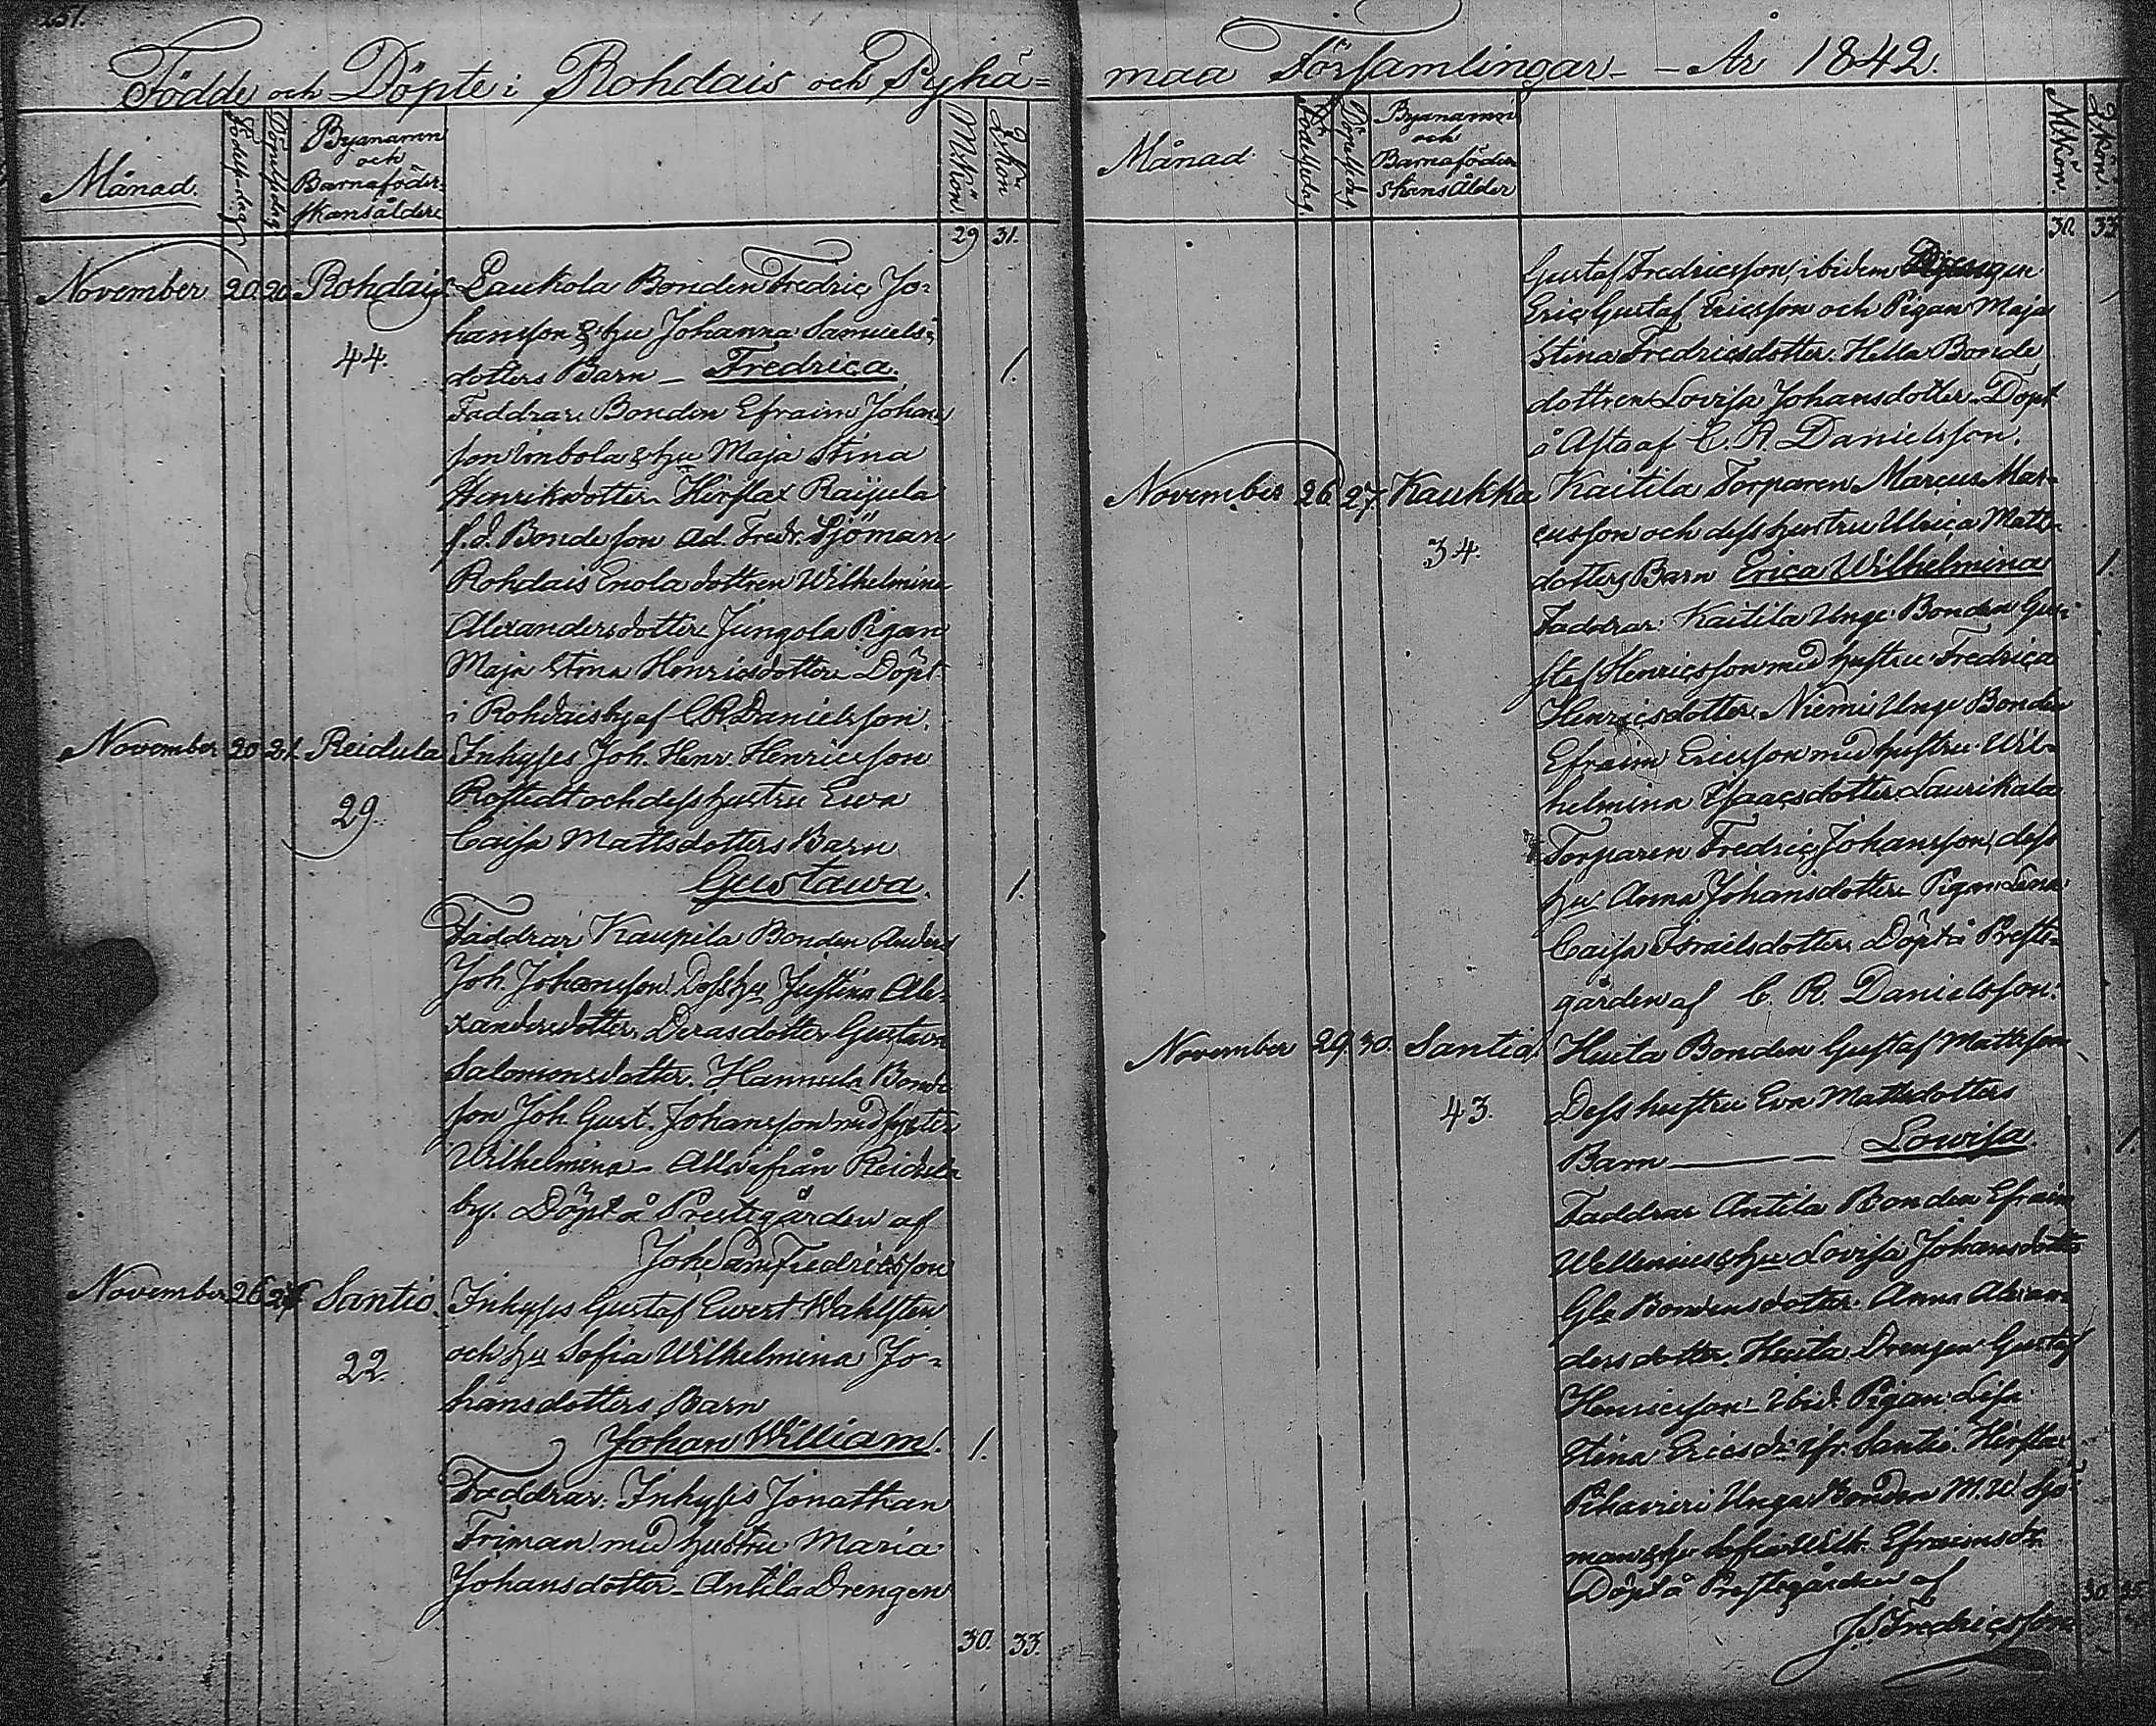 251.
Födde och Döpte i Rohdais och Pyhä=
Månad.
Födelsedag
Döpelsedag
Byanamn
och
Barnaföder
skans ålder
M.Kön.
Q.Kön
29 31.
November 20. 20. Rohdais Laukola Bonden Fredric Jo=
hansson & hu Johanna Samuels=
44.
dotters Barn – Fredrica. 1.
Faddrar: Bonden Efraim Johans
son & hu Maja Stina
Henriksdotter. Hirslax Raijula
f.d. Bonde son Ad. Fredr. Sjöman
Rohdais Enola dottren Wilhelmina
Alexandersdotter Jungola Pigan
Maja Stina Henricsdotter Döpt
i Rohdais by af C. R. Danielsson.
November 20. 21. Reidula Inhyses Joh. Henr. Henricsson
Rostedt och dess hustru Ewa
29.
Caisa Mattsdotters Barn
Gustawa. 1.
Faddrar Kaupila Bonden Anders
Joh. Johansson. Dess hu Justina Ale=
xandersdotter. Deras dotter Gustava
Salomonsdotter. Hannula Bonde
son Joh. Gust. Johansson med syster
Wilhelmina – Alla ifrån Reidula
by. Döpt å Prestgården af
Joh. Fredricsson
November 26 27 Santio. Inhyses Gustaf Ewert Wahlsten
och hu Sofia Wilhelmina Jo=
22.
hansdotters Barn
Johan William. 1.
Faddrar: Inhyses Jonathan
Friman med hustru Maria
Johansdotter – Antila Drengen
30. 33.
maa Församlingar – – År 1842.
Månad.
Födelsedag.
Döpelsedag.
Byanamn
och
Barnaföder
skans Ålder
M.Kön.
Q.Kön.
30. 33
Gustaf Fredricsson, ibidem
Eric Gustaf Ericsson och Pigan Maja
Stina Fredricsdotter. Hella Bonde
dottren Lovisa Johansdotter. Döpt
å af C. R. Danielsson.
November 26. 27. Kaukka Kaitila Torparen Marcus Mar=
cusson och dess hustru Ulrica Matts
34.
dotters Barn Erica Wilhelmina 1.
Faddrar: Kaitila Unge Bonden Gu=
staf Henricsson med hustru Fredrica
Henricsdotter. Niemi Unge Bonden
Efraim Ericsson med hustru Wil=
helmina Isaacsdotter. Laurikala
Torparen Fredric Johansson, dess
hu Anna Johansdotter Pigan Lena
Caisa Israelsdotter. Döpt å Prest=
gården af C. R. Danielsson.
November 29. 30. Santio. Huita Bonden Gustaf Mattsson
43.
Dess hustru Eva Mattsdotters
Barn – – Lowisa. 1.
Faddrar Antila Bonden Efraim
Wellenius & hu Lovisa Johansdotter
Gla Bondens dotter. Anna Alexan
dersdotter. Huita Drengen Gustaf
Henricsson – Ibid. Pigan Lisa
Stina Ericsdr ifr. Santio. Hirslax
Pihavieri Unga Bonden M. W. Sjö=
man & hu Sofia Wilh. Efraimsdr.
Döpt å Prestegården af
30. 35.
J. Fredricsson